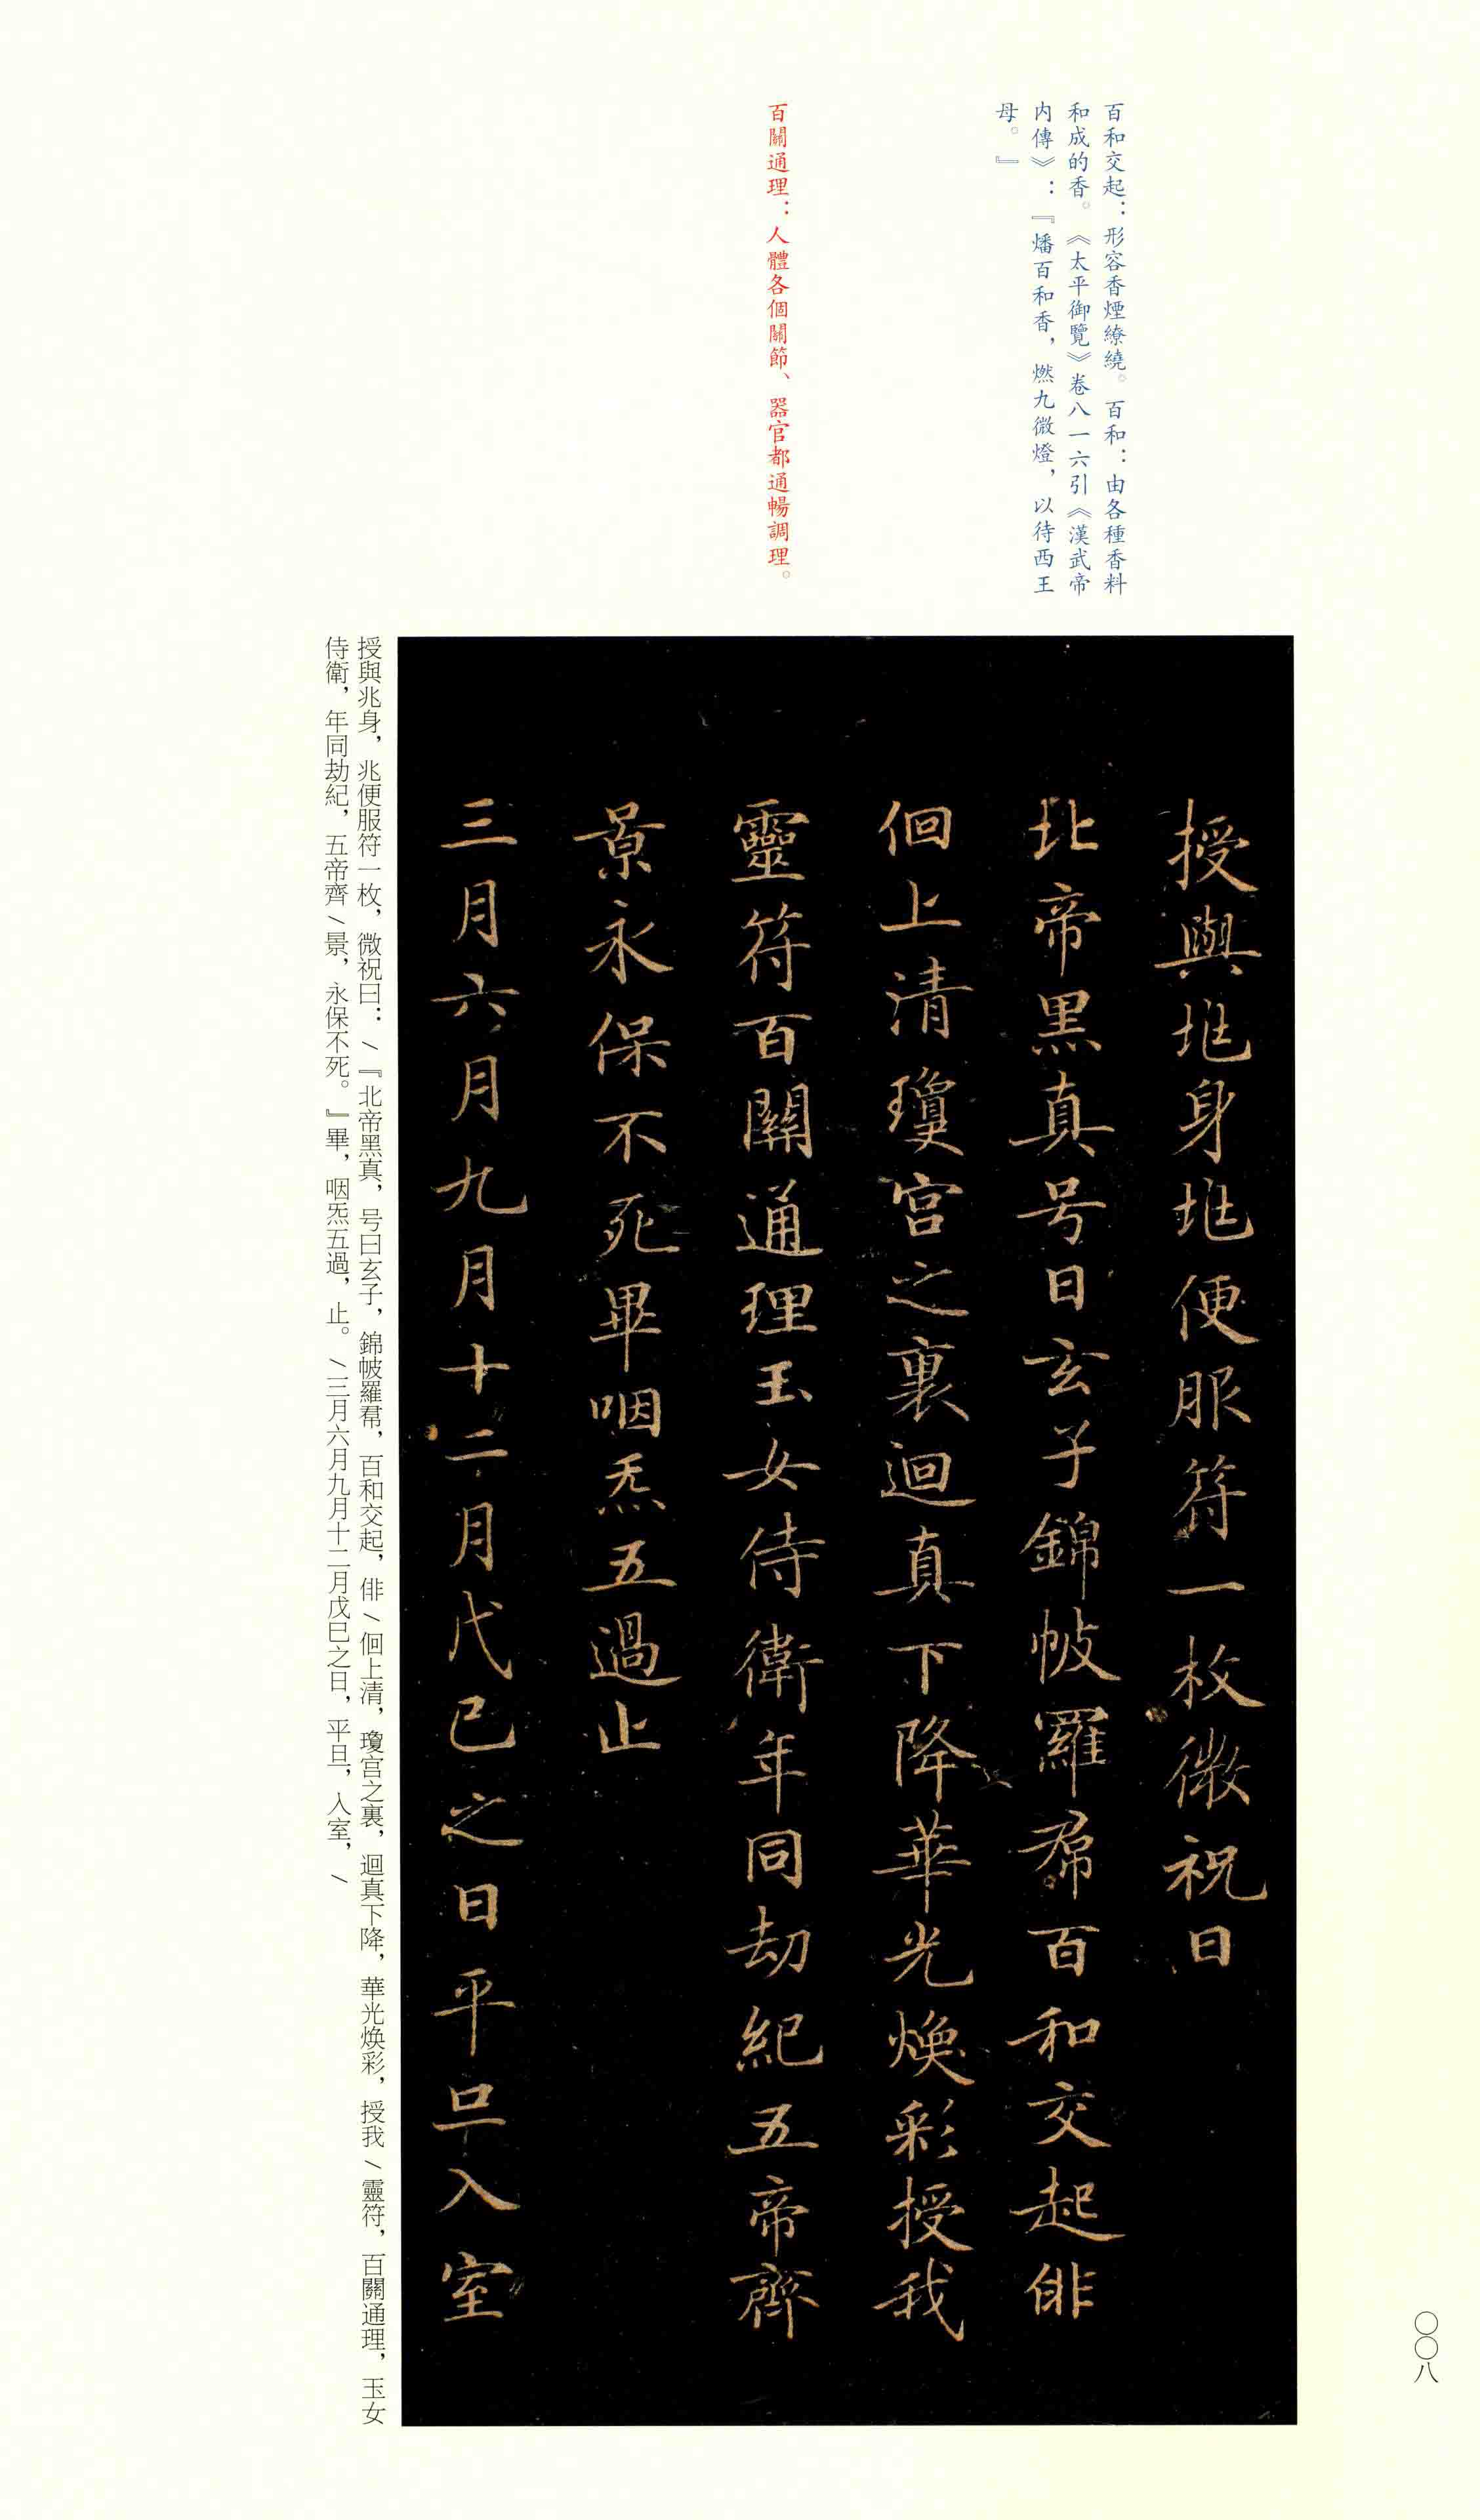 百和交起：形容香煙繚繞。百和：由各種香料
和成的香。《太平御覽》卷八一六引《漢武帝
内傳》：『燔百和香，燃九微燈，以待西王
母。』
百關通理：人體各個關節、器官都通暢調理。
授與兆身兆便服符一枚微祝曰
北帝黑真号曰玄子錦帔羅帬百和交起俳
佪上清瓊宫之裏迴真下降華光焕彩授我
靈符百關通理玉女侍衛年同劫紀五帝齊
景永保不死畢咽炁五過止
三月六月九月十二月戊巳之日平旦入室
授與兆身，兆便服符一枚，微祝曰：/『北帝黑真，号曰玄子，錦帔羅帬，百和交起，俳/佪上清，瓊宫之裏，迴真下降，華光焕彩，授我/靈符，百關通理，玉女
侍衛，年同劫紀，五帝齊/景，永保不死。』畢，咽炁五過，止。/三月六月九月十二月戊巳之日，平旦，入室，/
〇〇八